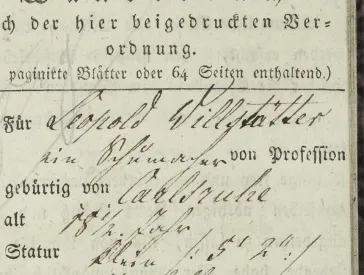 ch der hier beigedruckten Ver=
ordnung.
paginirte Blätter oder 64 Seiten enthaltend.)
Für Leopold Willstätter
ein Schumacher von Profession
gebürtig von Carlsruhe
alt 18½ Jahr
Statur klein 5' 2"